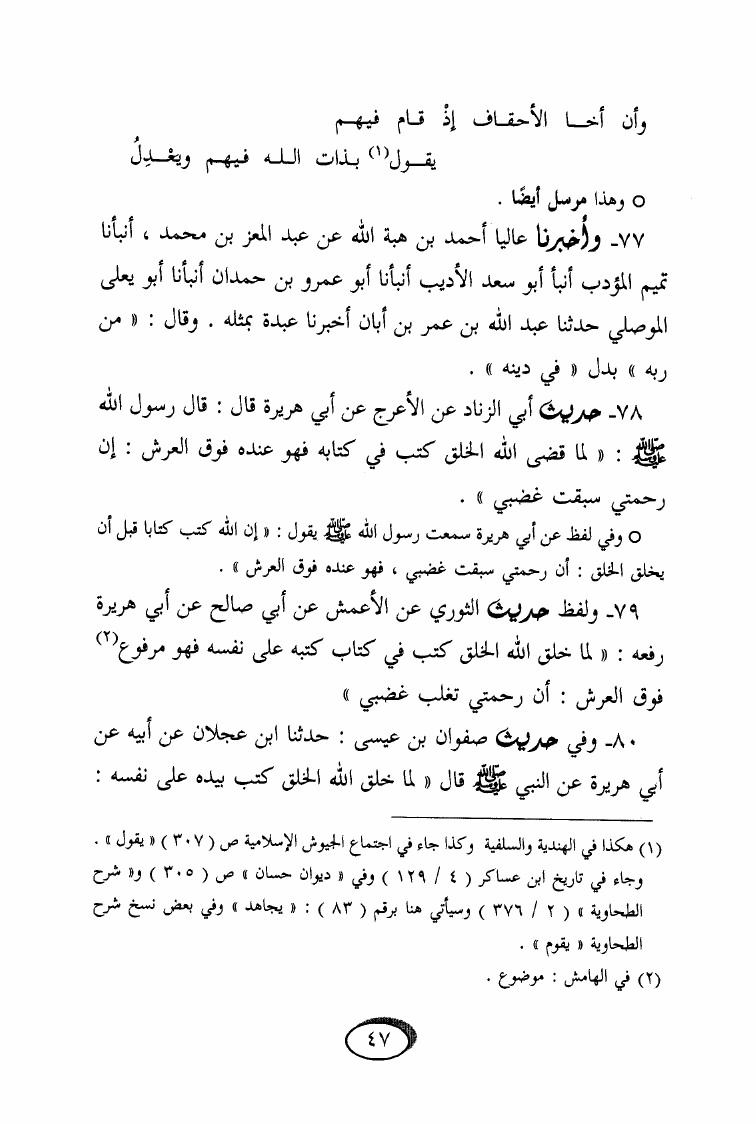 وأن أخـــا الأحقـاف إذْ قـام فيـهـم
يقـــول(١) بـذات الـلـه فيـهـم ويَعْـدِلُ
○ وهذا مرسل أيضًا .
٧٧ـ وأخبرنا عاليا أحمد بن هبة الله عن عبد المعز بن محمد ، أنبأنا
تميم المؤدب أنبأ أبو سعد الأديب أنبأنا أبو عمرو بن حمدان أنبأنا أبو يعلى
الموصلي حدثنا عبد الله بن عمر بن أبان أخبرنا عبدة بمثله . وقال : « من
ربه » بدل « في دينه » .
٧٨ـ حديث أبي الزناد عن الأعرج عن أبي هريرة قال : قال رسول الله
ﷺ : « لما قضى الله الخلق كتب في كتابه فهو عنده فوق العرش : إن
رحمتي سبقت غضبي » .
○ وفي لفظ عن أبي هريرة سمعت رسول الله ﷺ يقول : « إن الله كتب كتابا قبل أن
يخلق الخلق : أن رحمتي سبقت غضبي ، فهو عنده فوق العرش » .
٧٩ـ ولفظ حديث الثوري عن الأعمش عن أبي صالح عن أبي هريرة
رفعه : « لما خلق الله الخلق كتب في كتاب كتبه على نفسه فهو مرفوع(٢)
فوق العرش : أن رحمتي تغلب غضبي »
٨٠ـ وفي حديث صفوان بن عيسى : حدثنا ابن عجلان عن أبيه عن
أبي هريرة عن النبي ﷺ قال « لما خلق الله الخلق كتب بيده على نفسه :
(١) هكذا في الهندية والسلفية وكذا جاء في اجتماع الجيوش الإسلامية ص ( ٣٠٧ ) « يقول » .
وجاء في تاريخ ابن عساكر ( ٤ / ١٢٩ ) وفي « ديوان حسان » ص ( ٣٠٥ ) و« شرح
الطحاوية » ( ٢ / ٣٧٦ ) وسيأتي هنا برقم ( ٨٣ ) : « يجاهد » وفي بعض نسخ شرح
الطحاوية « يقوم » .
(٢) في الهامش : موضوع .
٤٧